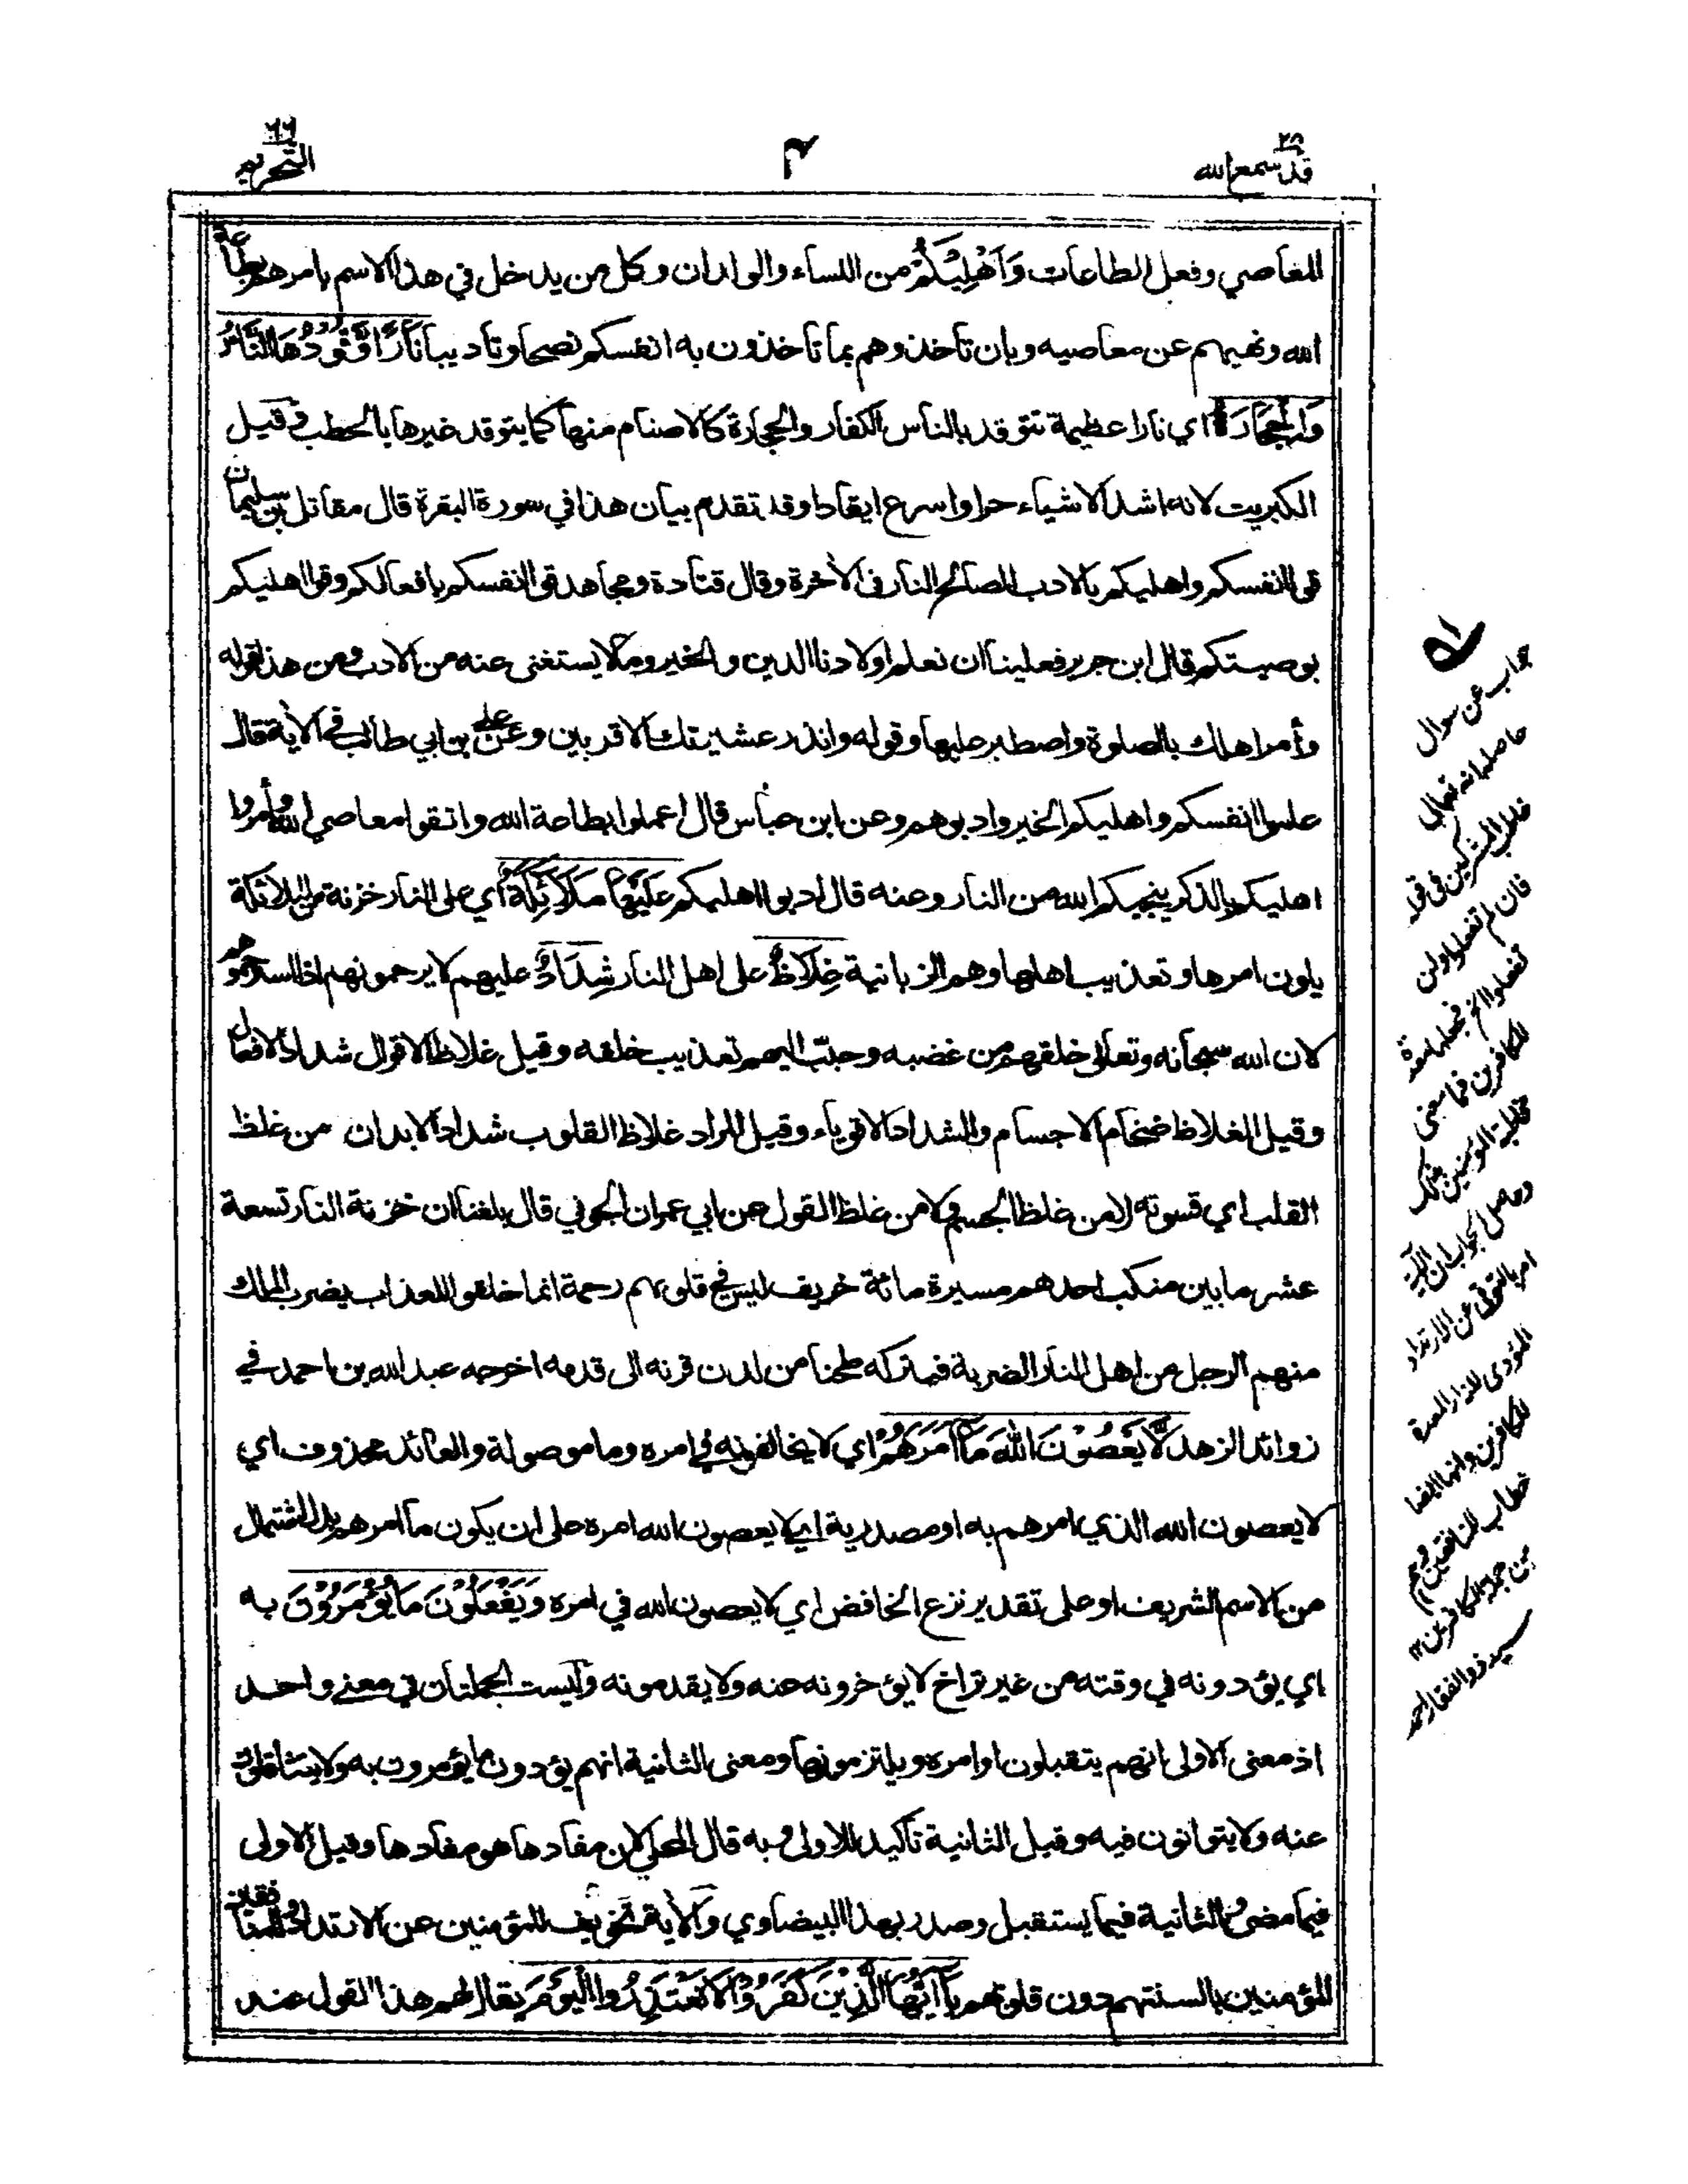 قد سمع الله ٢٨
التحريم ٦٦
المعاصي وفعل الطاعات وَاَهْلِيْكُمْ من النساء والولدان وكل من يدخل في هذا الاسم بامرهم بطاعة
الله ونهيهم عن معاصيه وبان تأخذوهم بما تأخذون به انفسكم نصحا وتأديبا نَارًا وَّقُوْدُهَا النَّاسُ
وَالْحِجَارَةُ اي نارا عظيمة تتوقد بالناس الكفار والحجارة كالاصنام منها كما يتوقد غيرها بالحطب وقيل
الكبريت لانه اشد الاشياء حرا واسرع ايقادا وقد تقدم بيان هذا في سورة البقرة قال مقاتل بن سليمان
قوا انفسكم واهليكم بالادب الصالح النار في الأخرة وقال قتادة ومجاهد قوا انفسكم بافعالكم وقوا اهليكم
بوصيتكم قال ابن جرير فعلينا ان نعلم اولادنا الدين والخير وما لا يستغنى عنه من الادب ومن هذا قوله
وأمر اهلك بالصلوة واصطبر عليها وقوله وانذر عشيرتك الاقربين وعن علي بن ابي طالب في الأية قال
علموا انفسكم واهليكم الخير وادبوهم وعن ابن عباس قال اعملوا بطاعة الله واتقوا معاصي الله وأمروا
اهليكم بالذكر ينجيكم الله من النار وعنه قال ادبوا اهليكم عَلَيْهَا مَلَائِكَةٌ اي على النار خزنة من الملائكة
يلون امرها وتعذيب اهلها وهم الزبانية غِلَاظٌ على اهل النار شِدَادٌ عليهم لا يرحمونهم اذا استرحموهم
لان الله سبحانه وتعالى خلقهم من غضبه وحبب اليهم تعذيب خلقه وقيل غلاظ الاقوال شداد الافعال
وقيل الغلاظ ضخام الاجسام والشداد الاقوياء وقيل المراد غلاظ القلوب شداد الابدان من غلظ
القلب اي قسوته لا من غلظ الجسم ولا من غلظ القول عن ابي عمران الجوني قال بلغنا ان خزنة النار تسعة
عشر ما بين منكب احدهم مسيرة مائة خريف ليس في قلوبهم رحمة انما خلقوا للعذاب يضرب الملك
منهم الرجل من اهل النار الضربة فيتركه طحنا من لدن قرنه الى قدمه اخرجه عبد الله بن احمد في
زوائد الزهد لَّا يَعْصُوْنَ اللّٰهَ مَا اَمَرَهُمْ اي لا يخالفونه في امره وما موصولة والعائد محذوف اي
لا يعصون الله الذي امرهم به او مصدرية اي لا يعصون الله امره على ان يكون ما امرهم بدل اشتمال
من الاسم الشريف او على تقدير نزع الخافض اي لا يعصون الله في امره وَيَفْعَلُوْنَ مَا يُؤْمَرُوْنَ به
اي يؤدونه في وقته من غير تراخ لا يؤخرونه عنه ولا يقدمونه وليست الجملتان في معنى واحد
اذ معنى الاولى انهم يتقبلون اوامره ويلتزمونها ومعنى الثانية انهم يؤدون ما يؤمرون به ولا يتثاقلون
عنه ولا يتوانون فيه وقيل الثانية تأكيد للاولى وبه قال المحلي لان مفادها هو مفادها وقيل الاولى
فيما مضى والثانية فيما يستقبل وصدر بهذا البيضاوي والأية تخويف للمؤمنين عن الارتداد وللمنافقين
المؤمنين بالسنتهم دون قلوبهم يَا اَيُّهَا الَّذِيْنَ كَفَرُوْا لَا تَعْتَذِرُوا الْيَوْمَ يقال لهم هذا القول عند
جواب عن سوال
حاصله انه تعالى
خاطب المشركين في قوله
فان لم تفعلوا ولن
تفعلوا الخ فجعلها معدة
للكافرين فما معنى
مخاطبة المؤمنين بذلك
وحاصل الجواب ان الآية
امر بالتوقي عن الارتداد
المؤدي للنار المعدة
للكافرين وانها ايضا
خطاب للمنافقين وهم
من جملة الكافرين ١٢
سيد ذو الفقار احمد